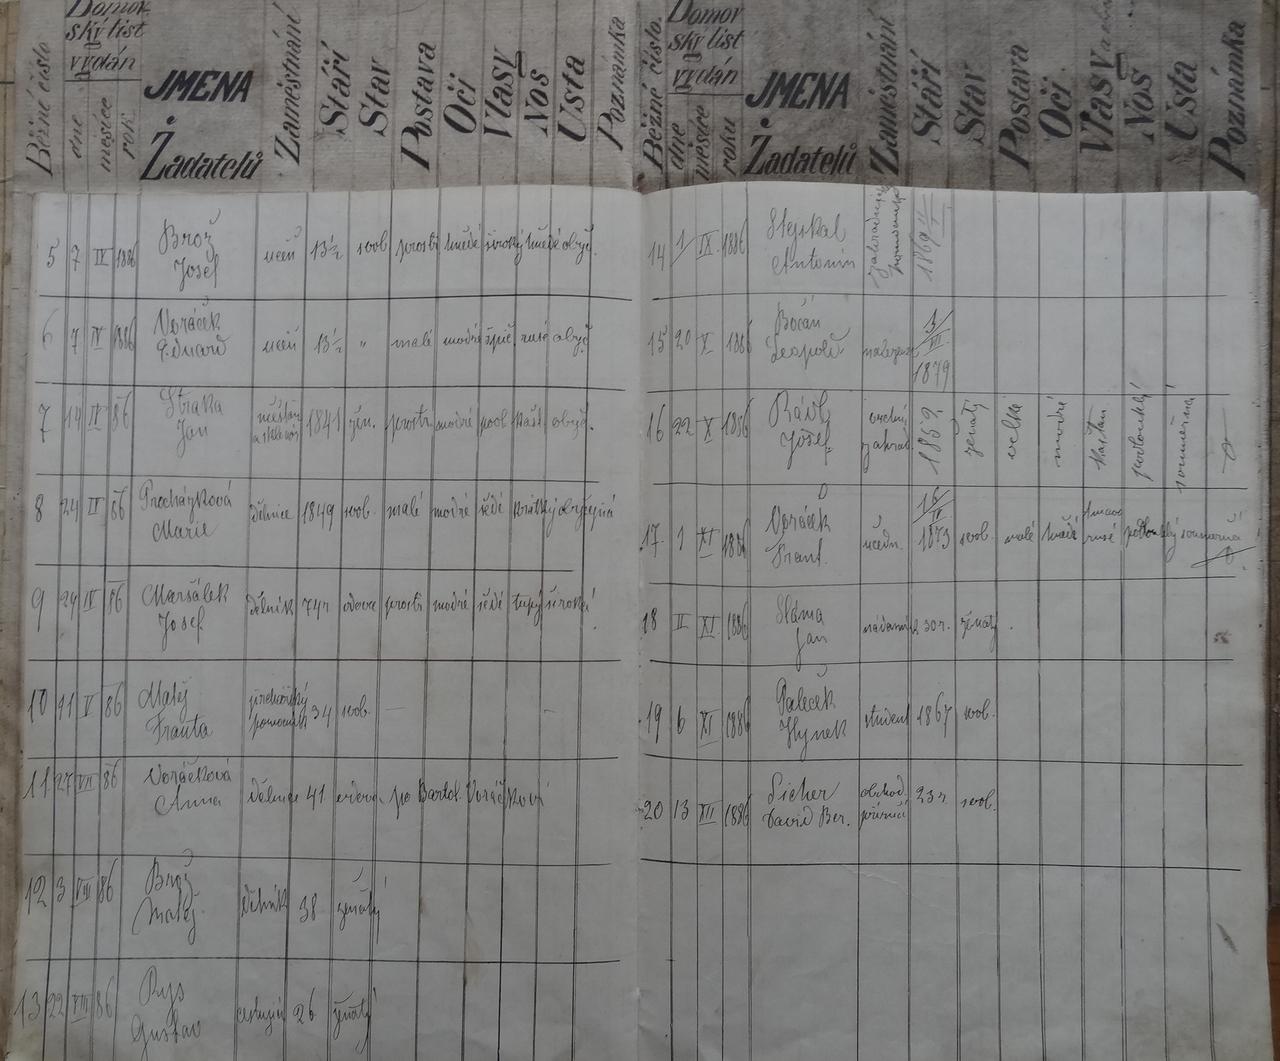 Běžné číslo
Domov
ský list
vydán
dne
měsíce
rok
JMENA
Žadatelů
Zaměstnání
Stáří
Stav
Postava
Oči
Vlasy
Nos
Usta
Poznámka
5 7 IV 1886 Brož Josef učeň 13½ svob prostř hnědé široký hnědé obyč.
6 7 IV 1886 Voráček Eduard učeň 13½ " malé modré špič rusé obyč
7 14 IV 86 Straka Jan 1841 žen. prostř modré podl kašt obyč.
8 24 IV 86 Procházková Marie dělnice 1849 svob. malé modré šedé krátký obyčejná
9 24 IV 86 Maršálek Josef dělník 74r vdovec prostř modré šedé tupý široká
10 11 V 86 Matěj Franta pomocník 34 svob. —
11 27 VII 86 Voráčková Anna dělnice 41 vdova po Bartol. Voráčkovi
12 3 VIII 86 Brož Matěj dělník 38 ženatý
13 22 VIII 86 Rys Gustav cestující 26 ženatý
Běžné číslo.
Domov
ský list
vydán
dne
měsíce
roku
JMENA
Žadatelů
Zaměstnání
Stáří
Stav
Postava
Oči
Vlasy
Nos
Usta
Poznámka
14 1 IX 1886 Stejskal Antonín zahradnický 1869
15 20 X 1886 Bočan Leopold 3/VII 1879
16 22 X 1886 Rádl Josef zahrad. 1859 ženatý velká modré kaštan. podlouhlý souměrná
17. 1 XI 1886 Voráček Frant. učedn. 1873 svob. malé hnědé tmavo rusé podlouhlý souměrná
18 II XI 1886 Sláma Jan nádenník 30r. ženatý.
19 6 XI 1886 Paleček Hynek student 1867 svob.
20 13 XII 1886 Sicher David Ber. obchod. příručí 23r. svob.